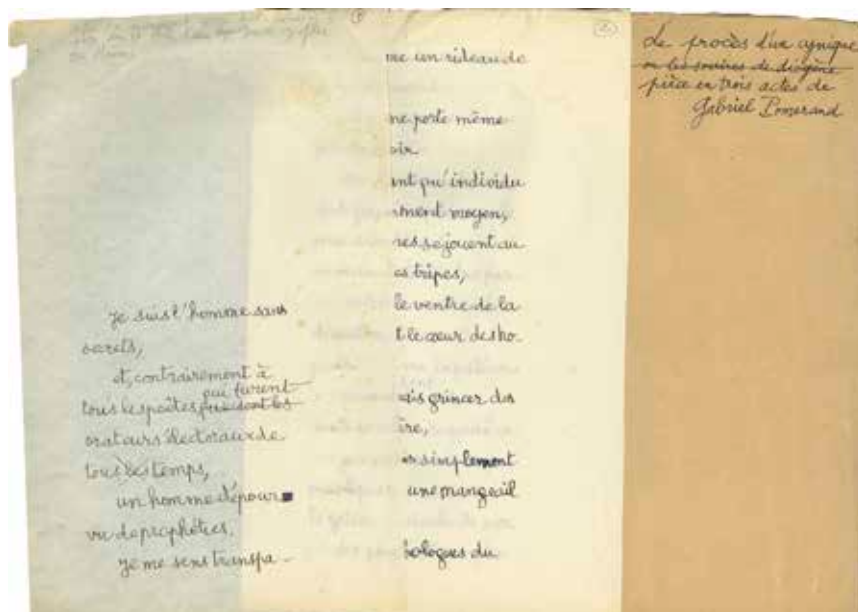 Je suis l'homme sans
secrets,
et, contrairement à
qui furent
tous les poètes qui sont les
orateurs électoraux de
tous les temps,
un homme dépour
vu de prophéties.
Je me sens transpa-
(2)
me un rideau de
ne porte même
oir
ant qu'individu
iment moyen,
res se jouent au
es tripes,
le ventre de la
t le cœur des ho-
ais grincer des
ire,
simplement
une mangeail
hologues du
Le procès d'un cynique
ou les sourires de diogène
pièce en trois actes de
Gabriel Pomerand